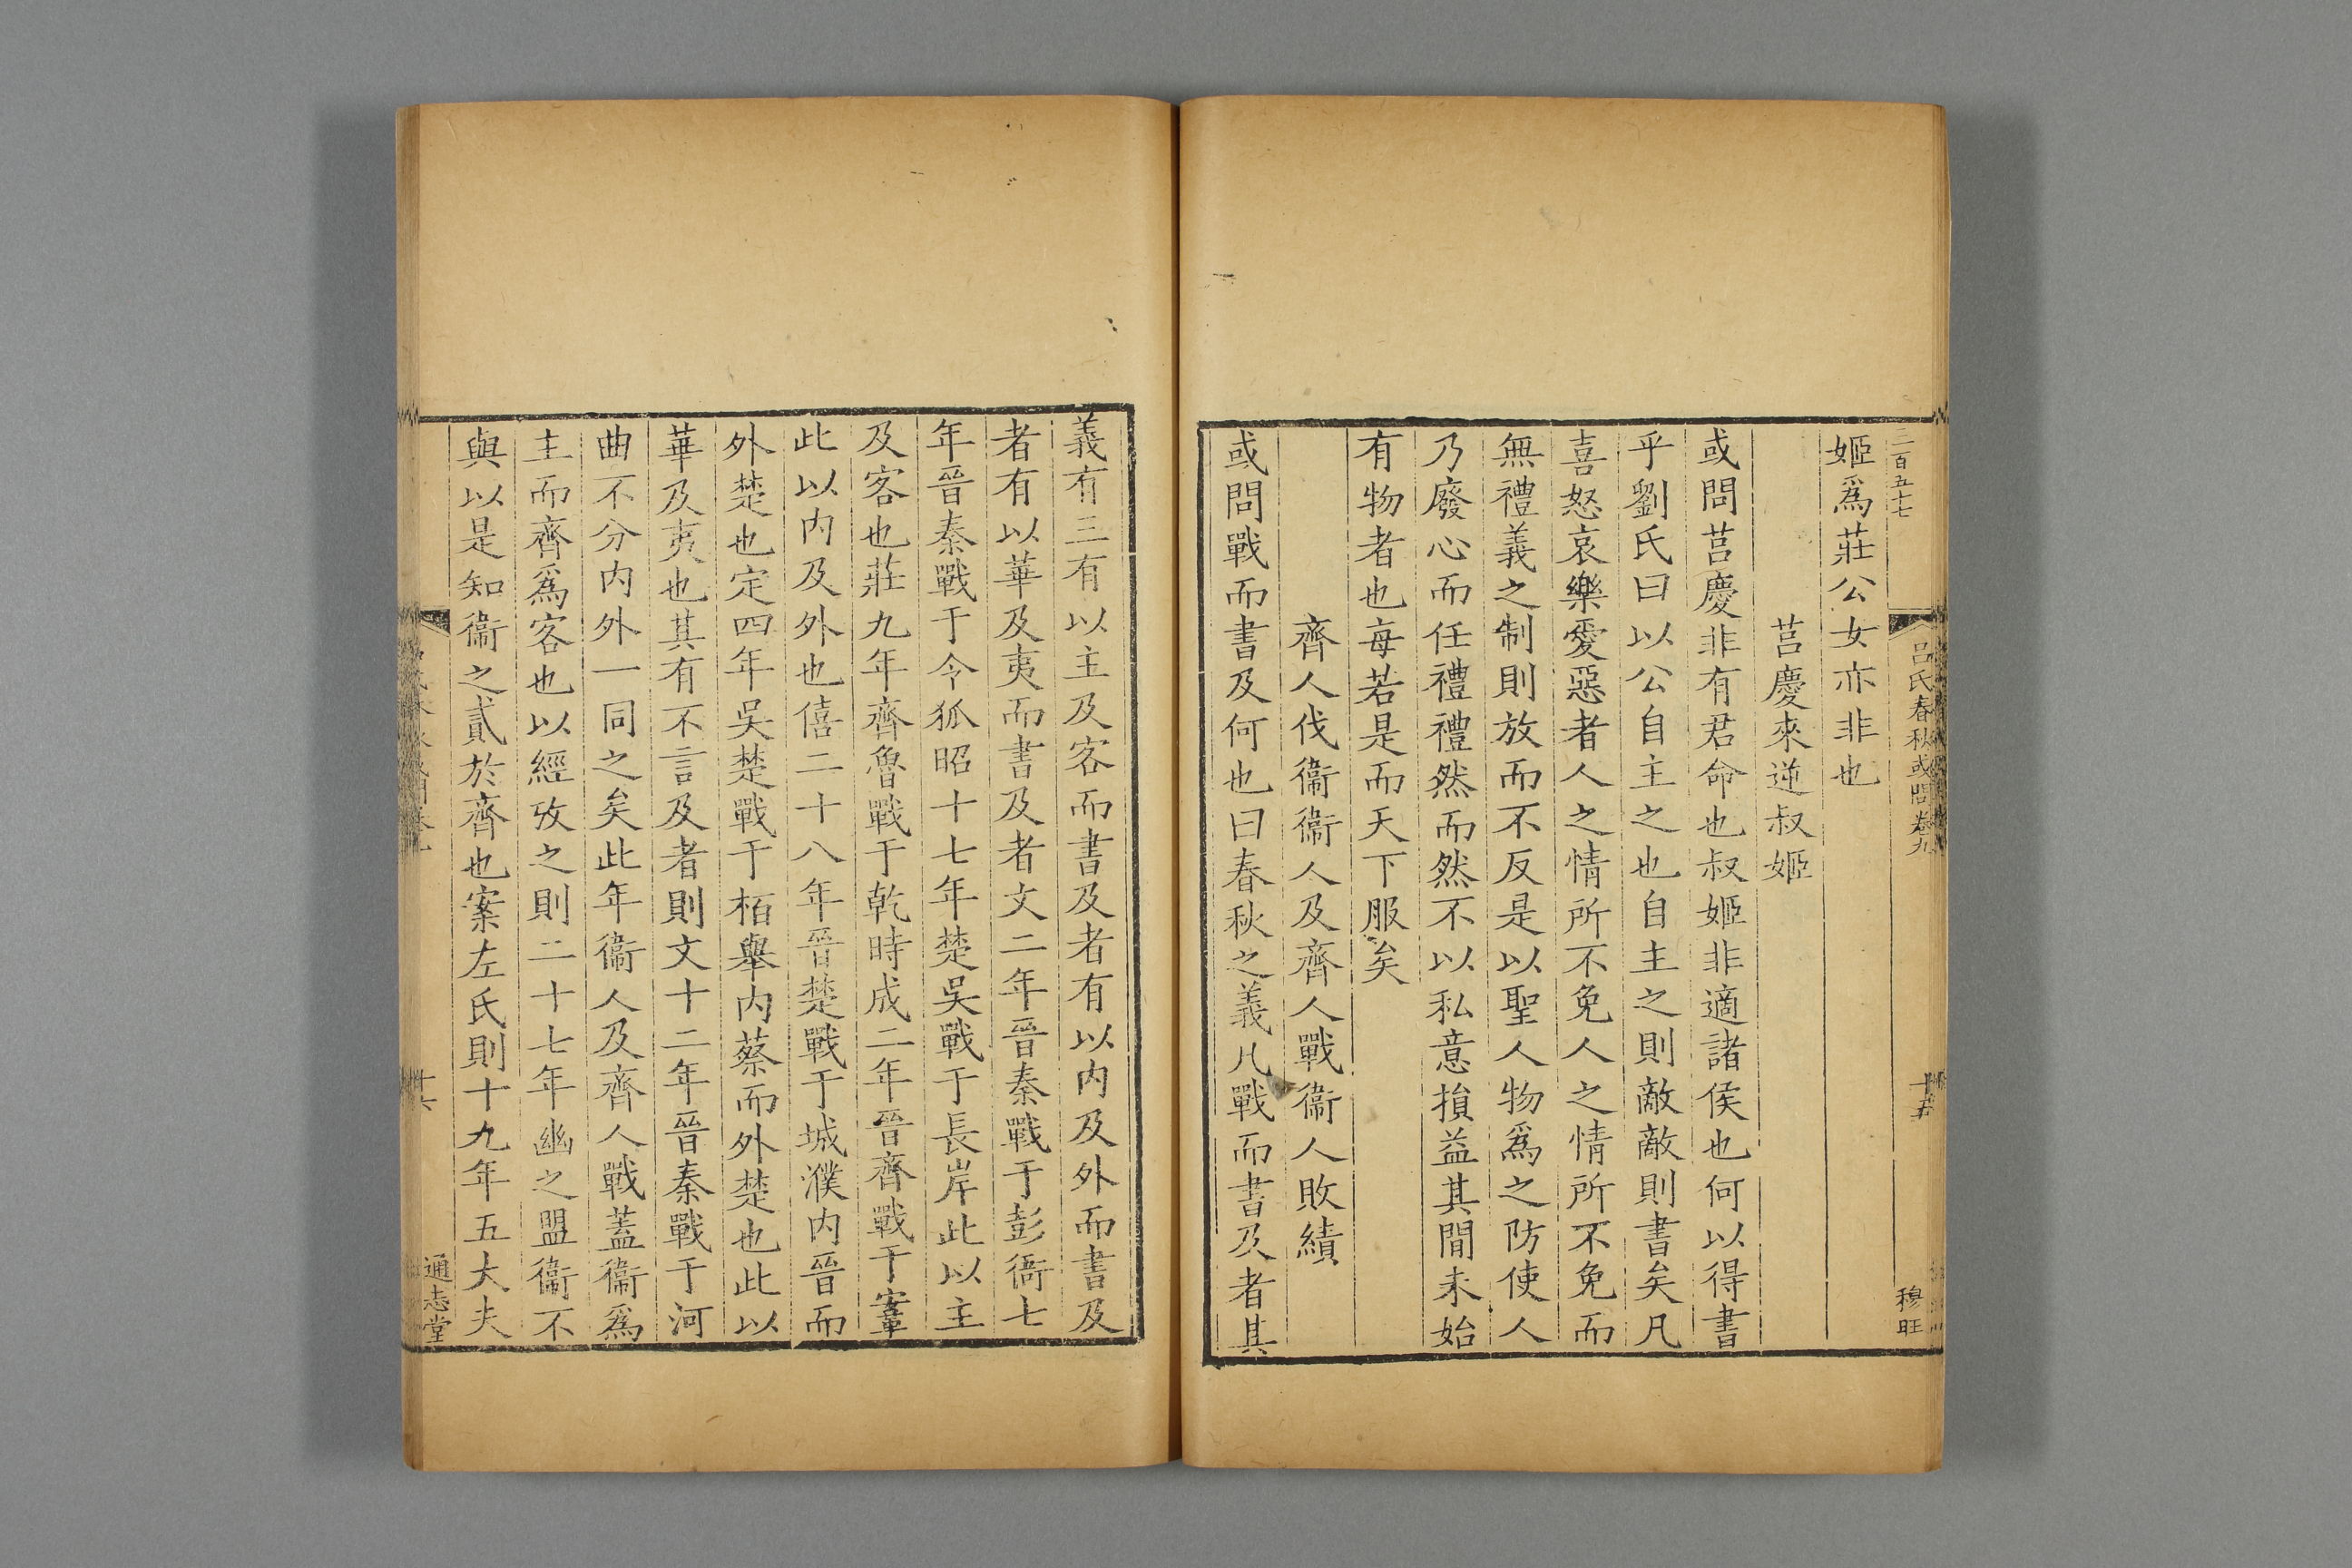 二百五十七
呂氏春秋或問卷九
十五
穆旺
姬爲莊公女亦非也
莒慶來逆叔姬
或問莒慶非有君命也叔姬非適諸侯也何以得書
乎劉氏曰以公自主之也自主之則敵敵則書矣凡
喜怒哀樂愛惡者人之情所不免人之情所不免而
無禮義之制則放而不反是以聖人物爲之防使人
乃廢心而任禮禮然而然不以私意損益其間未始
有物者也每若是而天下服矣
齊人伐衞衞人及齊人戰衞人敗績
或問戰而書及何也曰春秋之義凡戰而書及者其
義有三有以主及客而書及者有以内及外而書及
者有以華及夷而書及者文二年晉秦戰于彭衙七
年晉秦戰于令狐昭十七年楚吳戰于長岸此以主
及客也莊九年齊魯戰于乾時成二年晉齊戰于鞌
此以内及外也僖二十八年晉楚戰于城濮内晉而
外楚也定四年吳楚戰于栢舉内蔡而外楚也此以
華及夷也其有不言及者則文十二年晉秦戰于河
曲不分内外一同之矣此年衞人及齊人戰蓋衞爲
主而齊爲客也以經攷之則二十七年幽之盟衞不
與以是知衞之貳於齊也案左氏則十九年五大夫
十六
通志堂